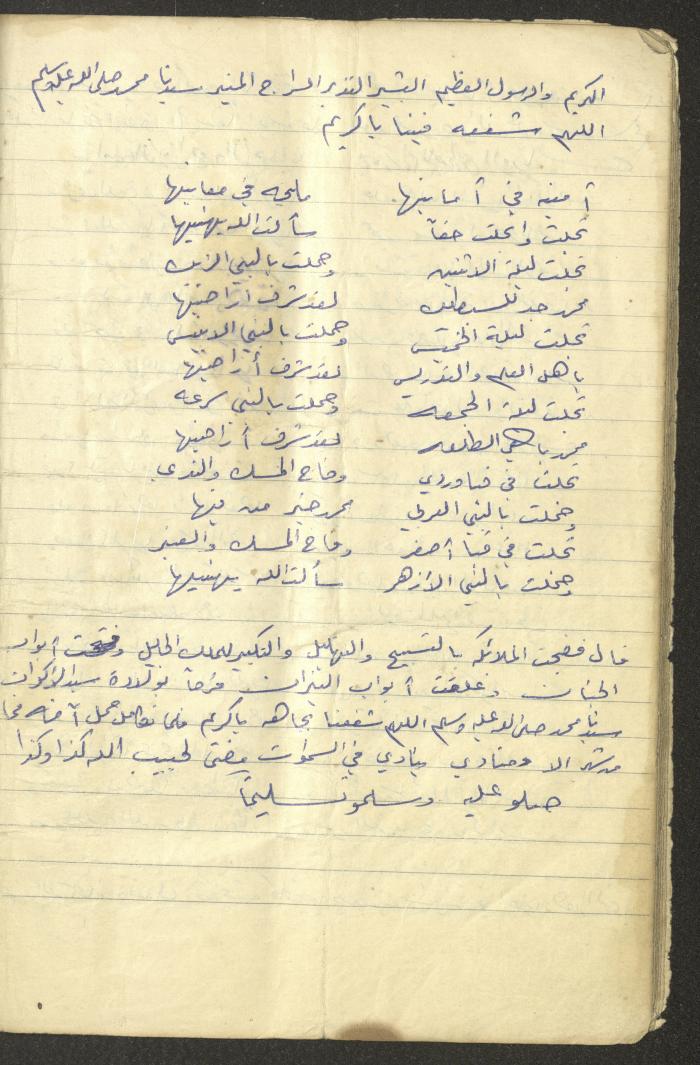 الكريم والرسول العظيم البشير النذير السراج المنير سيدنا محمد صلى الله عليه وسلم
اللهم شفعه فينا يا كريم
أمينه في أمانيها مليحه في معانيها
تجلت وانجلت حقاً سألت الله يهنيها
تجلت ليلة الاثنين وحملت بالنبي الزين
محمد جد للسبطين لقد شرف أراضيها
تجلت ليلة الخميس وحملت بالنبي الانيس
يا أهل العلم والتدريس لقد شرف أراضيها
تجلت ليلة الجمعه وحملت بالنبي سرعه
محمد باهي الطلعه لقد شرف أراضيها
تجلت في قبا وردي وفاح المسك والندي
وحملت بالنبي العربي محمد خير من فيها
تجلت في قبا أصفر وفاح المسك والعنبر
وحملت بالنبي الأزهر سألت الله يهنيها
قال فضجت الملائكه بالتسبيح والتهليل والتكبير للملك الجليل وفتحت أبواب
الجنان وغلقت أبواب النيران فرحاً بولادة سيد الاكوان
سيدنا محمد صلى الله عليه وسلم اللهم شفعنا بجاهه يا كريم فلما تكامل حمل آمنه فما
من شهر الا ومنادي ينادي في السموات مضى لحبيب الله كذا وكذا
صلو عليه وسلمو تسليماً